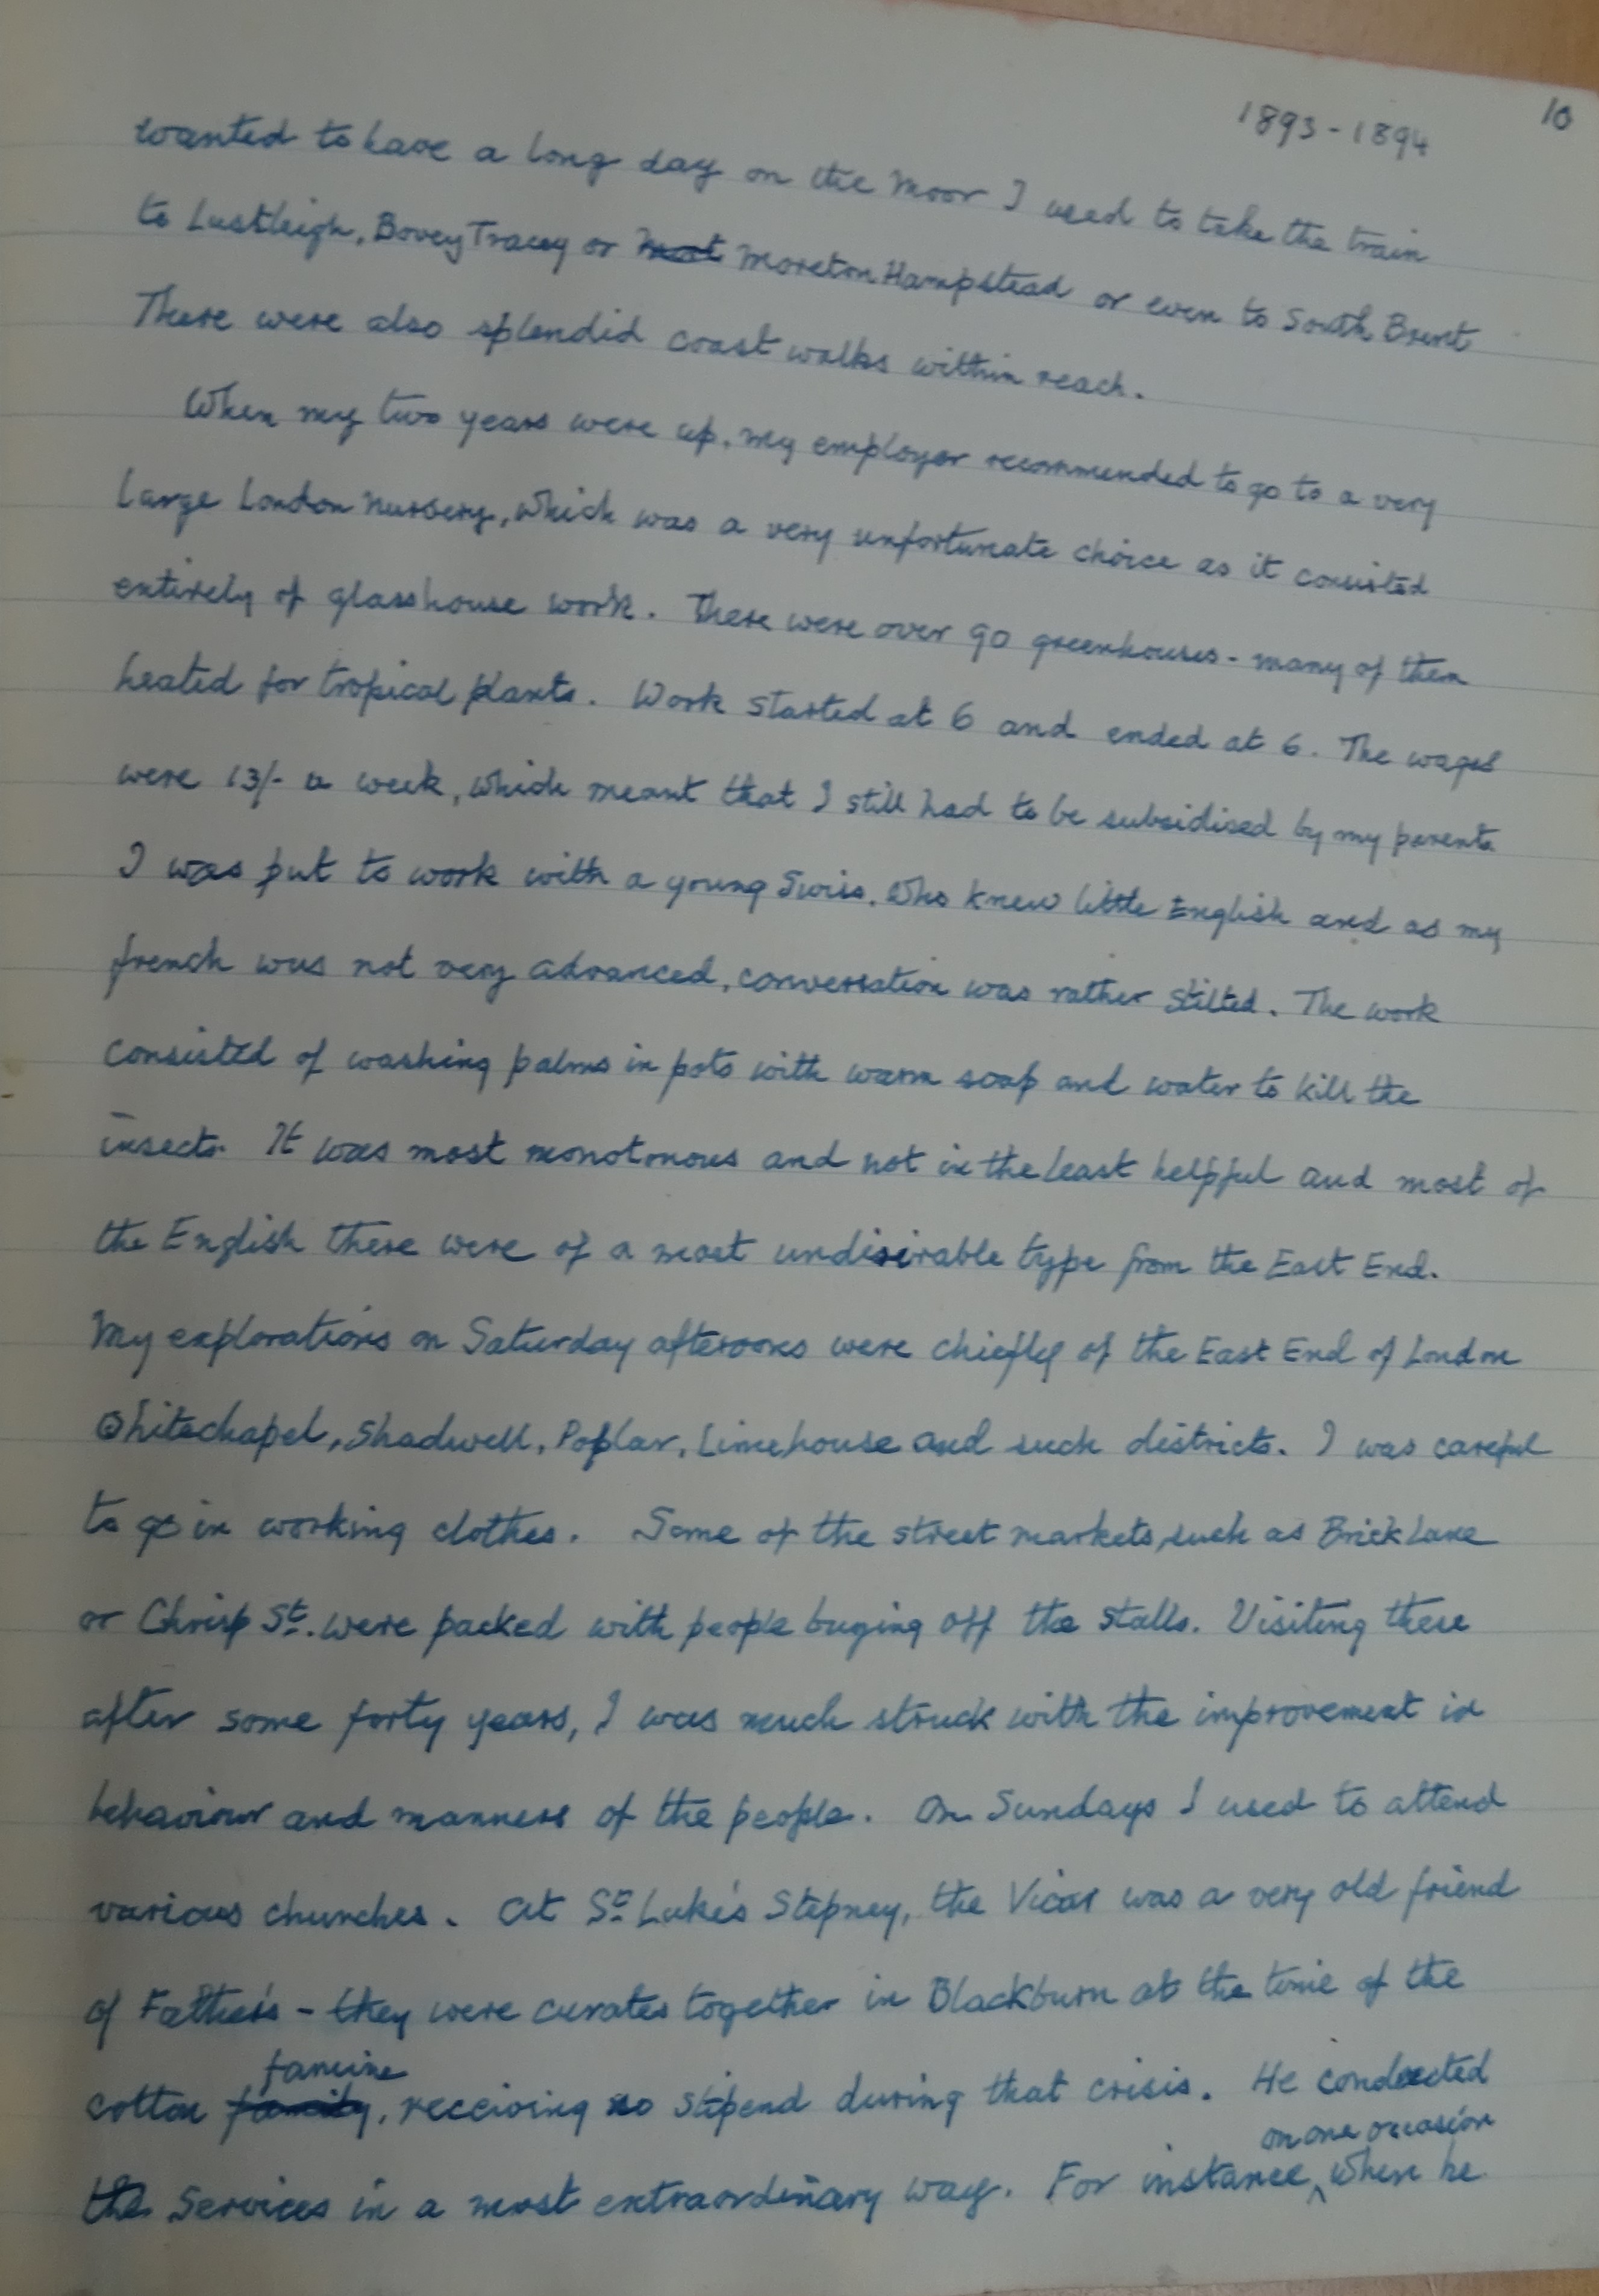 1893-1894
10
wanted to have a long day on the Moor I used to take the train
to Lustleigh, Bovey Tracey or Moreton Hampstead or even to South Brent
There were also splendid coast walks within reach.
When my two years were up, my employer recommended to go to a very
large London nursery, which was a very unfortunate choice as it consisted
entirely of glasshouse work. There were over 90 greenhouses - many of them
heated for tropical plants. Work started at 6 and ended at 6. The wages
were 13/- a week, which meant that I still had to be subsidised by my parents
I was put to work with a young Swiss, who knew little English and as my
french was not very advanced, conversation was rather stilted. The work
consisted of washing palms in pots with warm soap and water to kill the
insects. It was most monotonous and not in the least helpful and most of
the English there were of a most undisirable type from the East End.
My explorations on Saturday afteroons were chiefly of the East End of London
Whitechapel, Shadwell, Poplar, Limehouse and such districts. I was careful
to go in working clothes. Some of the street markets, such as Brick Lane
or Chrisp St. were packed with people buying off the stalls. Visiting these
after some forty years, I was much struck with the improvement in
behaviour and manners of the people. On Sundays I used to attend
various churches. At St Luke's Stepney, the Vicar was a very old friend
of Father's - they were curates together in Blackburn at the time of the
famine
cotton family, receiving no stipend during that crisis. He conducted
on one occasion
the services in a most extraordinary way. For instance, ^ when he